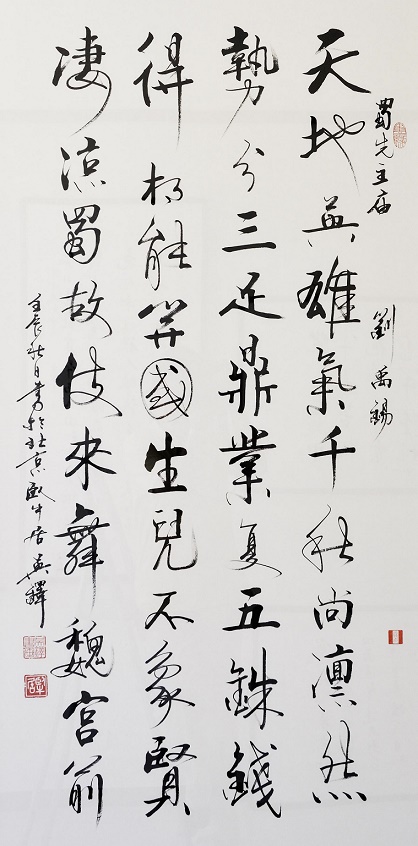 蜀先主庙 劉禹錫
天地英雄氣千秋尚凛然
勢分三足鼎業复五銖錢
得相能开國生兒不象賢
凄凉蜀故伎來舞魏宫前
壬辰秋日書於北京臥牛居英鐸